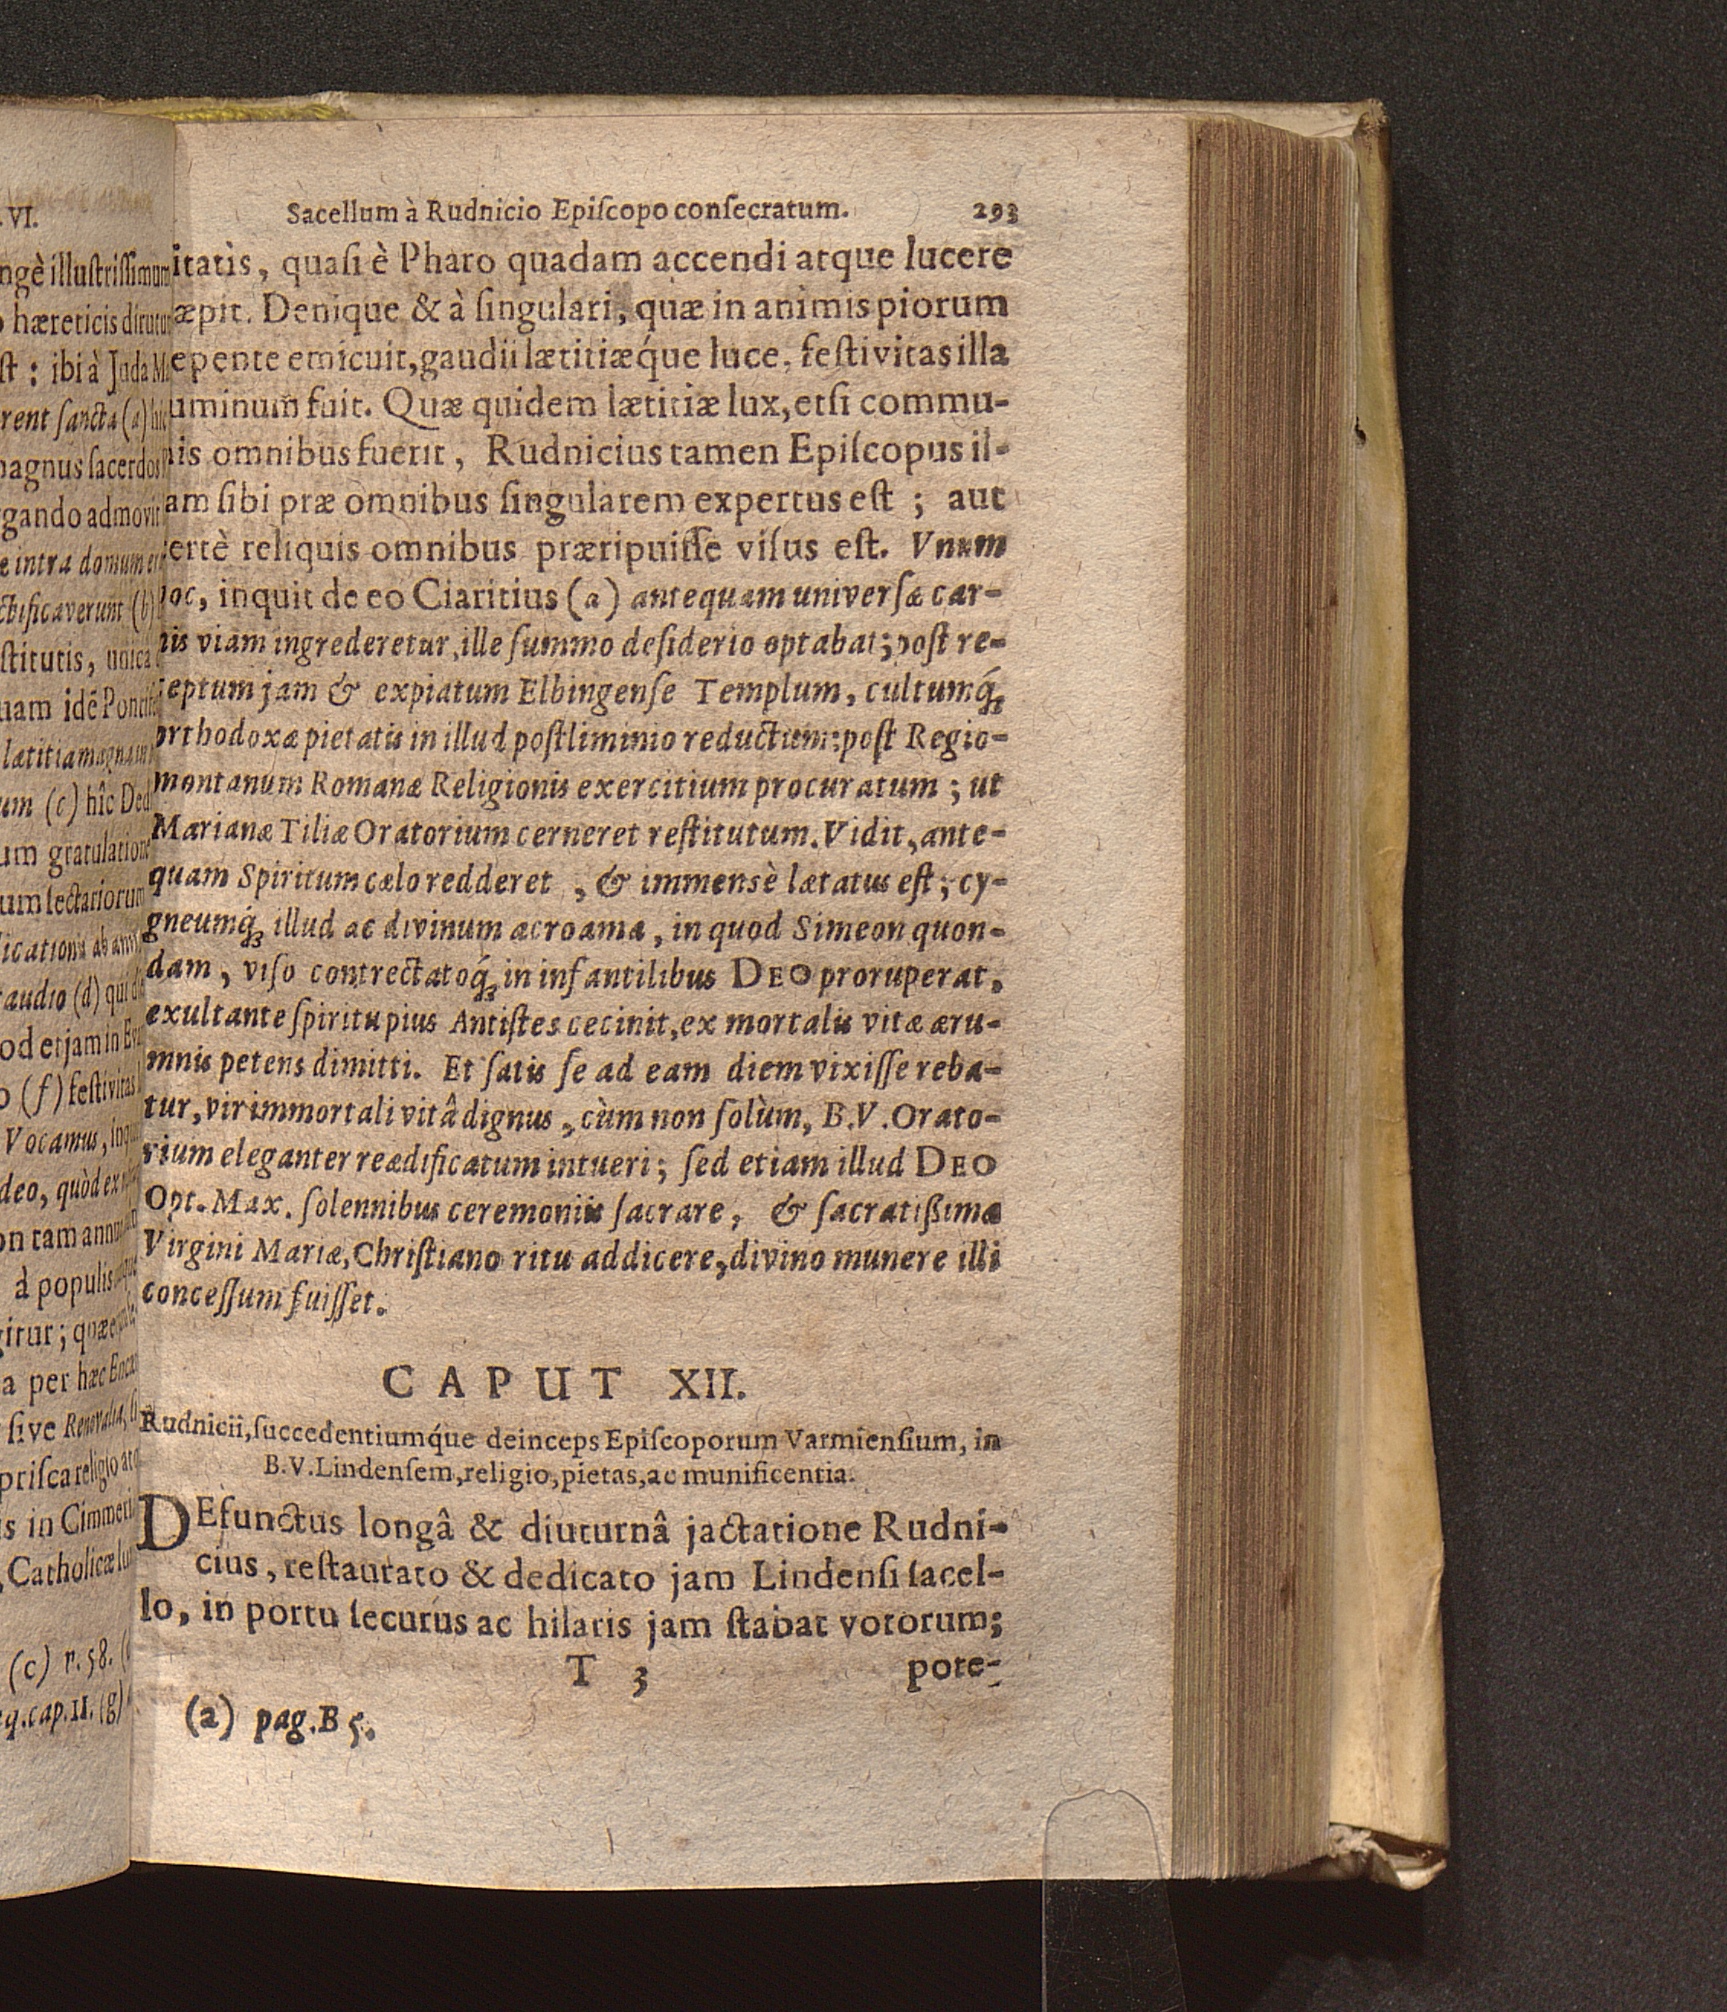 .VI.
ngè illuſtriſſimum
o hæreticis dirutu
ſt : ibi à Juda M
rent ſancta (a) hic
nagnus ſacerdos
gando admovit
e intra domum
ctificaverunt (b)
ſtitutis, unicâ
uam idē Pontif
lætitia magna in
um (c) hîc Ded
um gratulatione
um lectariorum
licationis ab ann
audio (d) qui di
od etjam in
o (f) feſtivitas
Vocamus, inq
deo, quòd ex
on tam annu
à populis
gitur; quæ
a per hæc Encæ
ſive Renovalia, ſi
priſca religio atq
s in Cimmeri
, Catholicæ lu
(c) v. 58.
q. cap. 11. (g)
Sacellum à Rudnicio Epiſcopo conſecratum. 293
itatis, quaſi è Pharo quadam accendi atque lucere
æpit. Denique & à ſingulari, quæ in animis piorum
epente emicuit, gaudii lætitiæq́ue luce, feſtivitas illa
uminum fuit. Quæ quidem lætitiæ lux, etſi commu-
nis omnibus fuerit, Rudnicius tamen Epiſcopus il-
am ſibi præ omnibus ſingularem expertus eſt ; aut
certè reliquis omnibus præripuiſſe viſus eſt. Vnum
hoc, inquit de eo Ciaritius (a) antequam univerſæ car-
nis viam ingrederetur, ille ſummo deſiderio optabat; poſt re-
ceptum jam & expiatum Elbingenſe Templum, cultumq́ꝫ
orthodoxæ pietatis in illud poſtliminio reductum: poſt Regio-
montanum Romanæ Religionis exercitium procuratum ; ut
Marianæ Tiliæ Oratorium cerneret reſtitutum. Vidit, ante-
quam Spiritum cælo redderet , & immensè lætatus eſt; cy-
gneumq́ꝫ illud ac divinum acroama, in quod Simeon quon-
dam, viſo contrectatoq́ꝫ in infantilibus DEO proruperat,
exultante ſpiritu pius Antiſtes cecinit, ex mortalis vitæ æru-
mnis petens dimitti. Et ſatis ſe ad eam diem vixiſſe reba-
tur, vir immortali vitâ dignus , cùm non ſolùm, B.V. Orato-
rium eleganter reædificatum intueri ; ſed etiam illud DEO
Opt. Max. ſolennibus ceremoniis ſacrare, & ſacratißimæ
Virgini Mariæ, Chriſtiano ritu addicere, divino munere illi
conceſſum fuiſſet.
CAPUT XII.
Rudnicii, ſuccedentiumq́ue deinceps Epiſcoporum Varmienſium, in
B.V. Lindenſem, religio, pietas, ac munificentia.
DEfunctus longâ & diuturnâ jactatione Rudni-
cius, reſtaurato & dedicato jam Lindenſi ſacel-
lo, in portu ſecurus ac hilaris jam ſtabat votorum;
T 3 pote-
(a) pag. B 5.